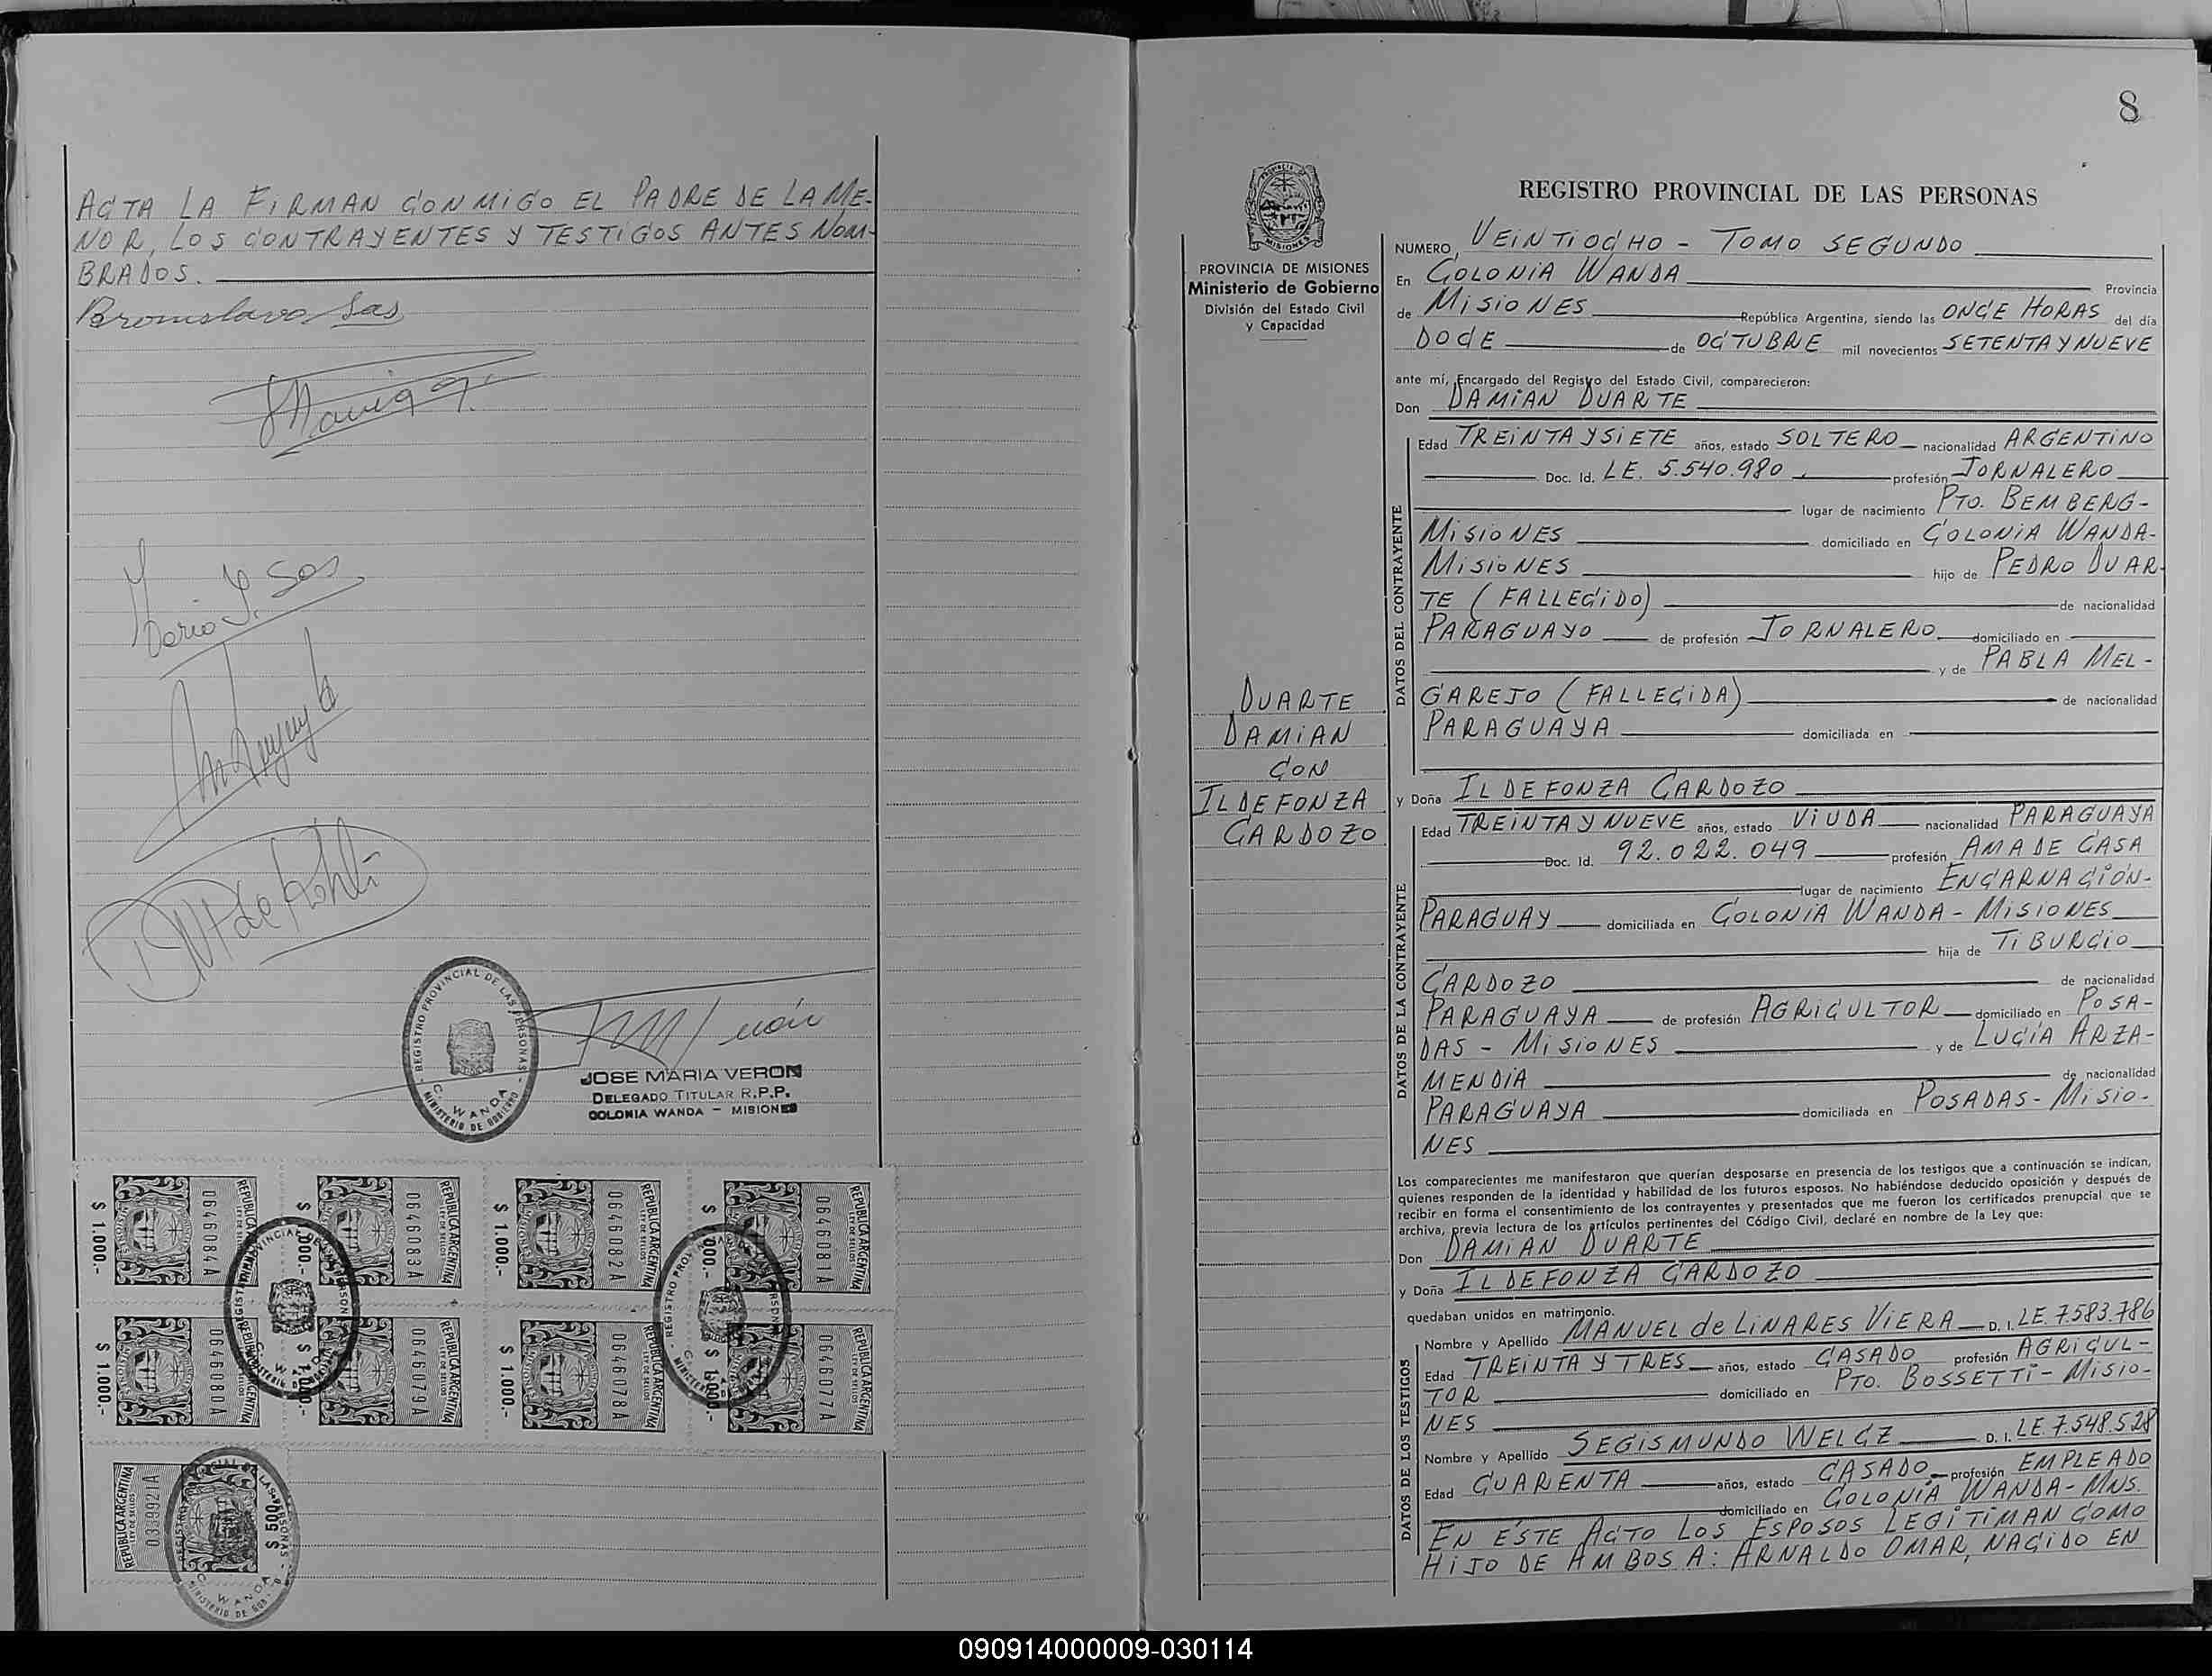 ACTA LA FIRMAN CONMIGO EL PADRE DE LA ME-
NOR, LOS CONTRAYENTES Y TESTIGOS ANTES NOM-
BRADOS.
Bronislavo Sas
Dario J. Sas
REGISTRO PROVINCIAL DE LAS PERSONAS
C. WANDA
MINISTERIO DE GOBIERNO
JOSE MARIA VERON
DELEGADO TITULAR R.P.P.
COLONIA WANDA - MISIONES
REPUBLICA ARGENTINA
LEY DE SELLOS
0646084A
$ 1.000.-
REPUBLICA ARGENTINA
LEY DE SELLOS
0646083A
REPUBLICA ARGENTINA
LEY DE SELLOS
0646082A
$ 1.000.-
REPUBLICA ARGENTINA
LEY DE SELLOS
0646081A
0646080A
$ 1.000.-
REPUBLICA ARGENTINA
0646079A
REPUBLICA ARGENTINA
0646078A
$ 1.000.-
REPUBLICA ARGENTINA
0646077A
REPUBLICA ARGENTINA
LEY DE SELLOS
$ 500
C. WANDA
8
PROVINCIA DE MISIONES
Ministerio de Gobierno
División del Estado Civil
y Capacidad
DUARTE
DAMIAN
CON
ILDEFONZA
CARDOZO
REGISTRO PROVINCIAL DE LAS PERSONAS
NUMERO VEINTIOCHO - TOMO SEGUNDO
En COLONIA WANDA Provincia
de MISIONES República Argentina, siendo las ONCE HORAS del día
DOCE de OCTUBRE mil novecientos SETENTA Y NUEVE
ante mí, Encargado del Registro del Estado Civil, comparecieron:
Don DAMIAN DUARTE
DATOS DEL CONTRAYENTE
Edad TREINTA Y SIETE años, estado SOLTERO nacionalidad ARGENTINO
Doc. Id. LE. 5.540.980 profesión JORNALERO
lugar de nacimiento PTO. BEMBERG-
MISIONES domiciliado en COLONIA WANDA-
MISIONES hijo de PEDRO DUAR-
TE (FALLECIDO) de nacionalidad
PARAGUAYO de profesión JORNALERO domiciliado en
y de PABLA MEL-
GAREJO (FALLECIDA) de nacionalidad
PARAGUAYA domiciliada en
y Doña ILDEFONZA CARDOZO
DATOS DE LA CONTRAYENTE
Edad TREINTA Y NUEVE años, estado VIUDA nacionalidad PARAGUAYA
Doc. Id. 92.022.049 profesión AMA DE CASA
lugar de nacimiento ENCARNACIÓN-
PARAGUAY domiciliada en COLONIA WANDA - MISIONES
hija de TIBURCIO
CARDOZO de nacionalidad
PARAGUAYA de profesión AGRICULTOR domiciliado en POSA-
DAS - MISIONES y de LUCÍA ARZA-
MENDIA de nacionalidad
PARAGUAYA domiciliada en POSADAS - MISIO-
NES
Los comparecientes me manifestaron que querían desposarse en presencia de los testigos que a continuación se indican,
quienes responden de la identidad y habilidad de los futuros esposos. No habiéndose deducido oposición y después de
recibir en forma el consentimiento de los contrayentes y presentados que me fueron los certificados prenupcial que se
archiva, previa lectura de los artículos pertinentes del Código Civil, declaré en nombre de la Ley que:
Don DAMIAN DUARTE
y Doña ILDEFONZA CARDOZO
quedaban unidos en matrimonio.
DATOS DE LOS TESTIGOS
Nombre y Apellido MANUEL de LINARES VIERA D. I. LE. 7.583.786
Edad TREINTA Y TRES años, estado CASADO profesión AGRICUL-
TOR domiciliado en PTO. BOSSETTI - MISIO-
NES
Nombre y Apellido SEGISMUNDO WELCZ D. I. LE. 7.548.528
Edad CUARENTA años, estado CASADO profesión EMPLEADO
domiciliado en COLONIA WANDA - MNS.
EN ÉSTE ACTO LOS ESPOSOS LEGITIMAN COMO
HIJO DE AMBOS A: ARNALDO OMAR, NACIDO EN
090914000009-030114